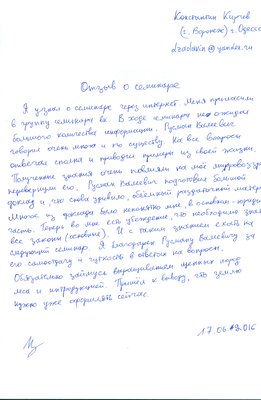 Константин Кирчев
(г. Воронеж) г. Одесса
Отзыв о семинаре
Я узнал о семинаре через интернет. Меня пригласили
в группу семинара вк. В ходе семинара не ожидал
большого количества информации. Руслан Валиевич
говорил очень много и по существу. На все вопросы
отвечает сполна и приводит примеры из своей жизни.
Полученные знания очень повлияли на моё мировоззр
перевернули его. Руслан Валиевич подготовил большой
доклад и, что снова удивило, объёмный раздаточный матер
Многое из доклада было непонятно мне, в основном - юриди
часть. Теперь во мне есть убеждение, что необходимо знать
все законы (основные). И с таким знанием ехать на
следующий семинар. Я благодарен Руслану Валиевичу за
его самоотдачу и чуткость в ответах на вопросы.
Обязательно займусь выращиванием ценных пород
леса и интродукцией. Пришёл к выводу, что землю
нужно уже оформлять сейчас.
17.06.2016